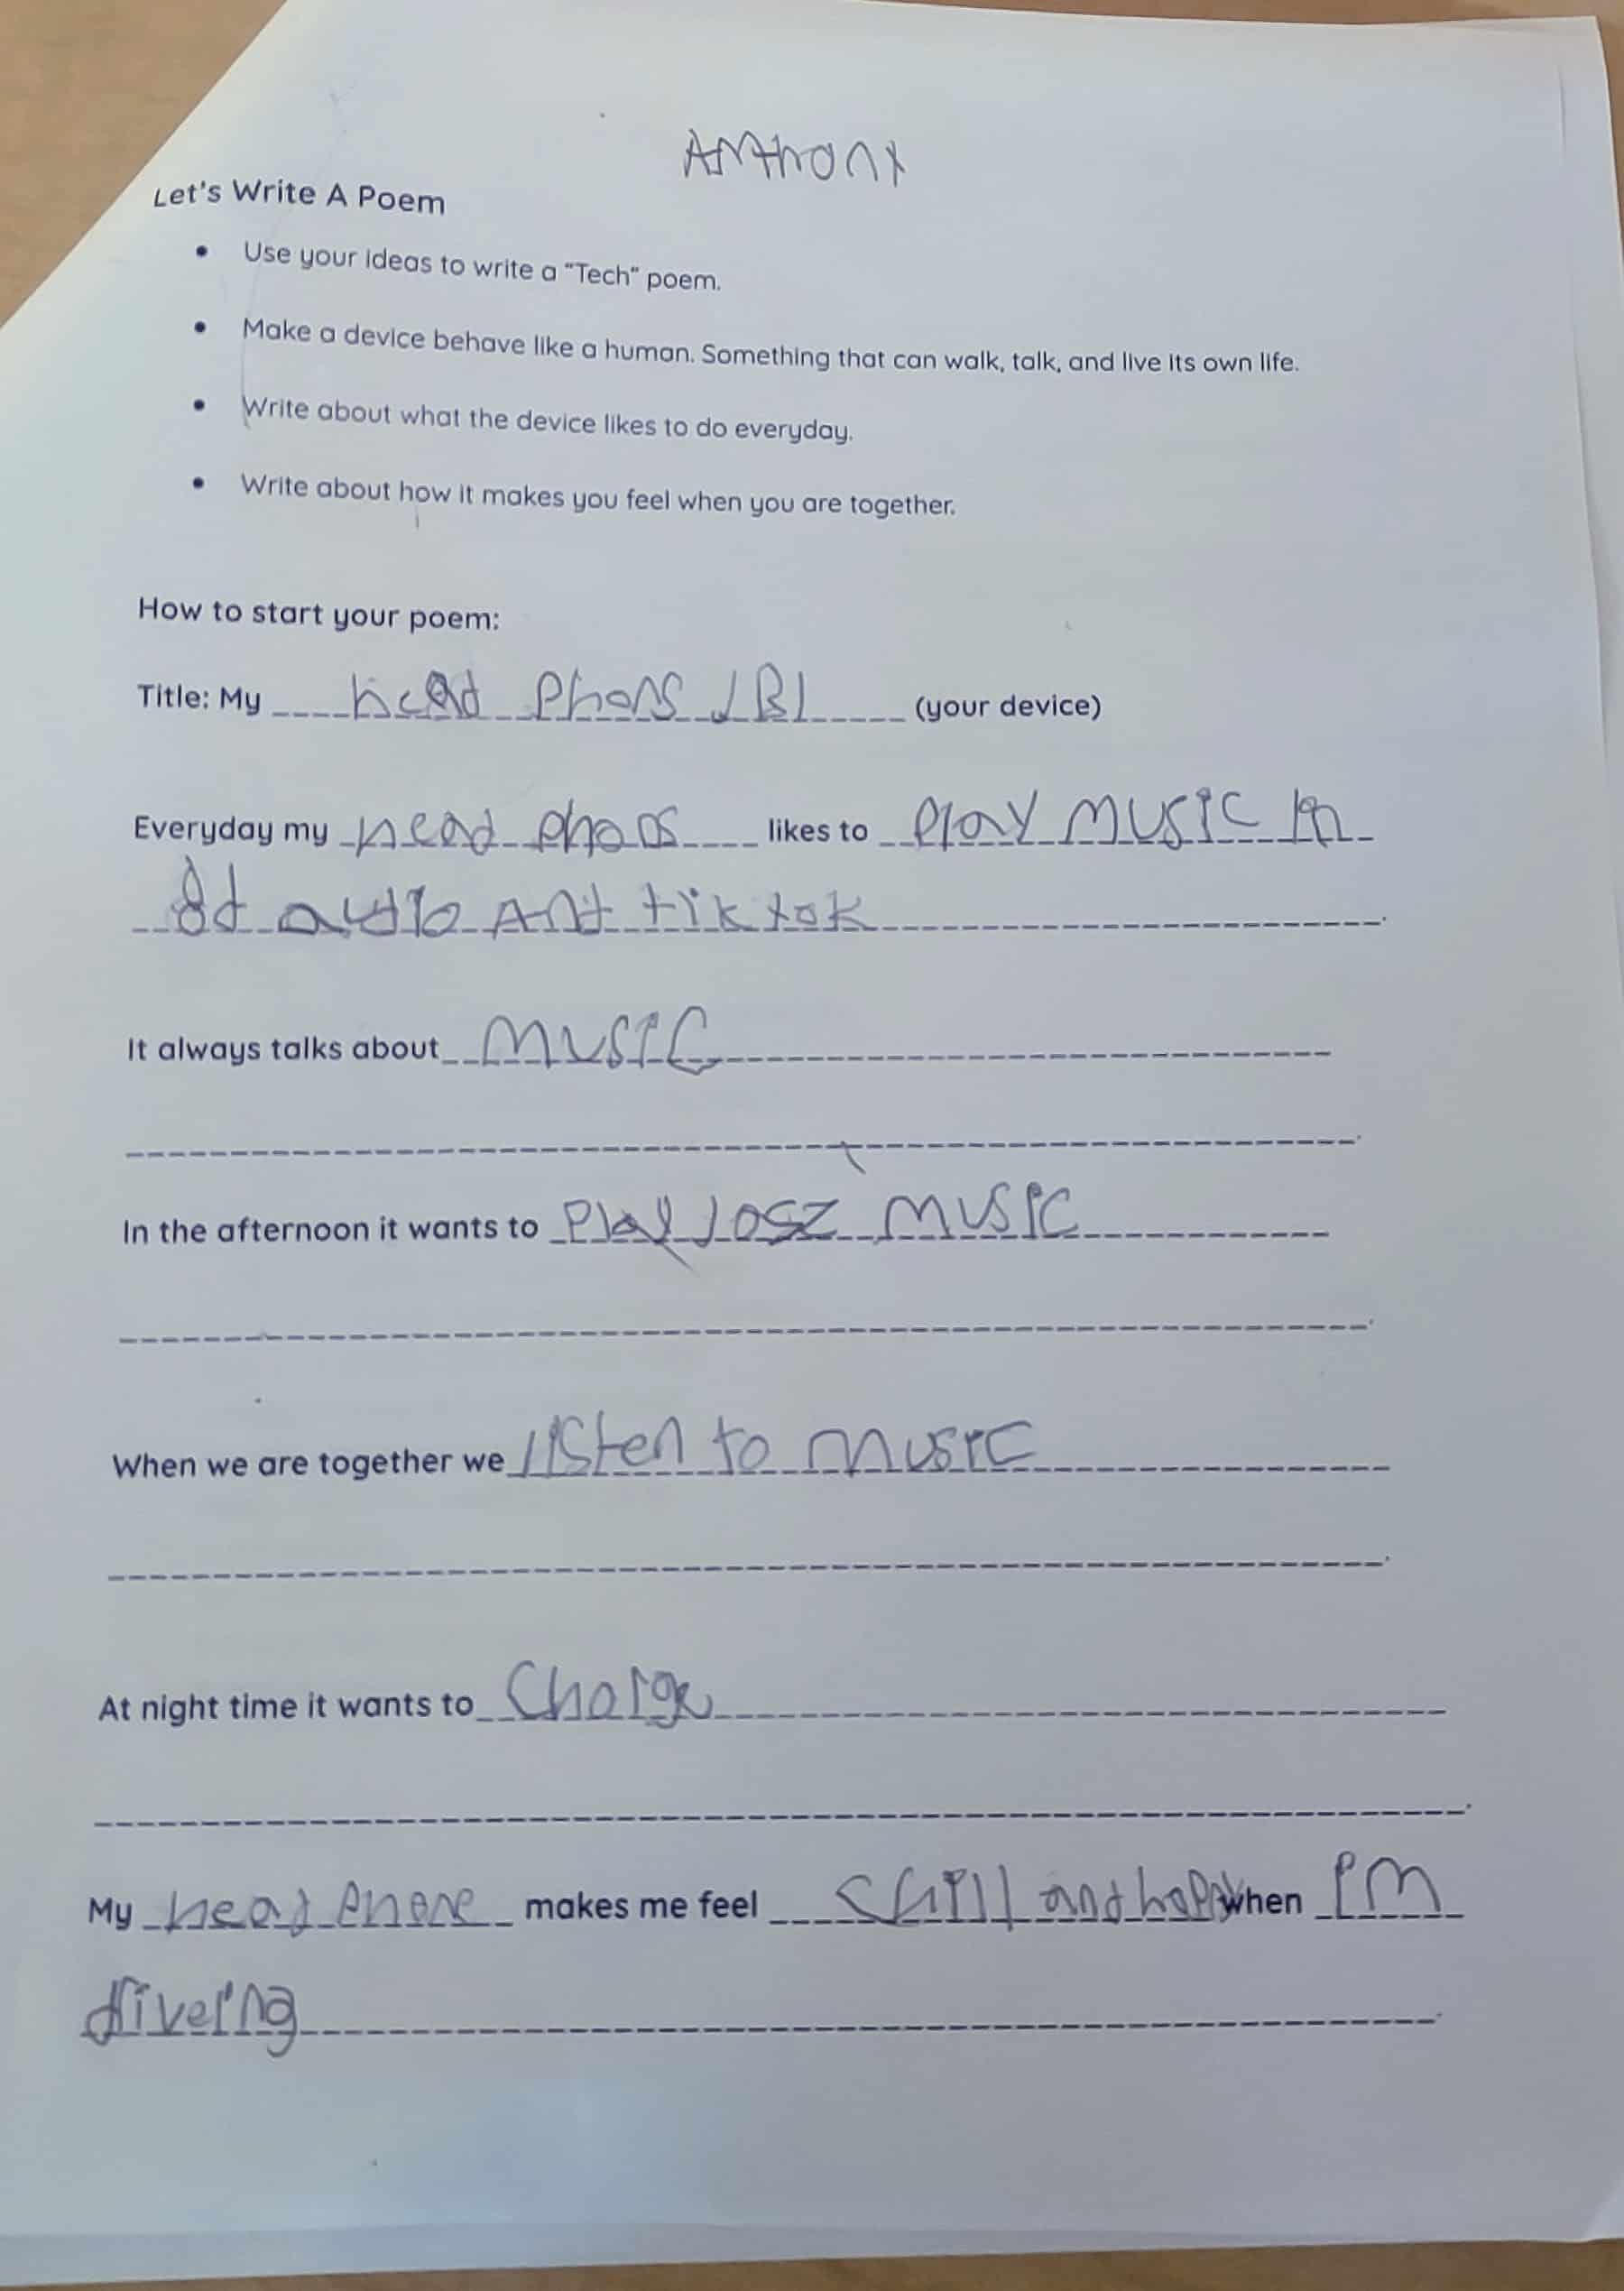 Anthony
Let's Write A Poem
• Use your ideas to write a “Tech” poem.
• Make a device behave like a human. Something that can walk, talk, and live its own life.
• Write about what the device likes to do everyday.
• Write about how it makes you feel when you are together.
How to start your poem:
Title: My head Phons JBl (your device)
Everyday my head phons likes to play music in
8d audio And tiktok.
It always talks about music
In the afternoon it wants to Play music
When we are together we listen to music
At night time it wants to Charge
My head Phone makes me feel Chill and happy when I'M
drivering.